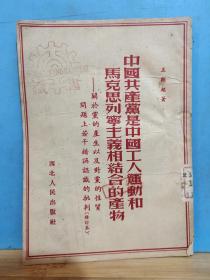 王斯起著
中國共產黨是中國工人運動和
馬克思列寧主義相結合的產物
——關於黨的產生以及對黨的性質
問題上若干錯誤認識的批判(修訂本)
西北人民出版社